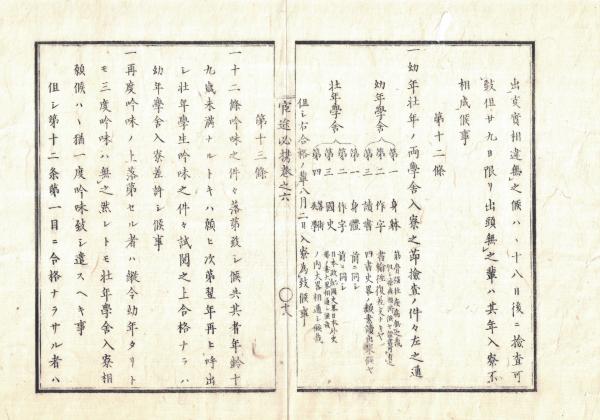 出実相違無之候ハヽ十八日後ニ検査可
致但廿九日限リ出頭無之輩ハ其年入寮不
相成候事
第十二條
一幼年壮年ノ両學舎入寮之節撿査ノ件々左之通
幼年學舎
第一 身躰
第二 作字
第三 讀書
壮年學舎
第一 身體 前ニ同シ
第二 作字 前ニ同シ
第三 國史
第四
但シ右合格ノ輩八月二日入寮為致候事
官途必携巻之六
第十三條
一十二條吟味之件々落第致シ候共其者年齢十
九歳未満ナルトキハ願ヒ次第翌年再ヒ呼出
シ壮年學生吟味之件々試問之上合格ナラハ
幼年學舎入寮差許シ候事
一再度吟味ノ上落第セル者ハ縦令幼年タリト
モ三度吟味ハ無之然レトモ壮年學舎入寮相
願候ハヽ猶一度吟味致シ遣スヘキ事
但シ第十二条第一目ニ合格ナラサル者ハ